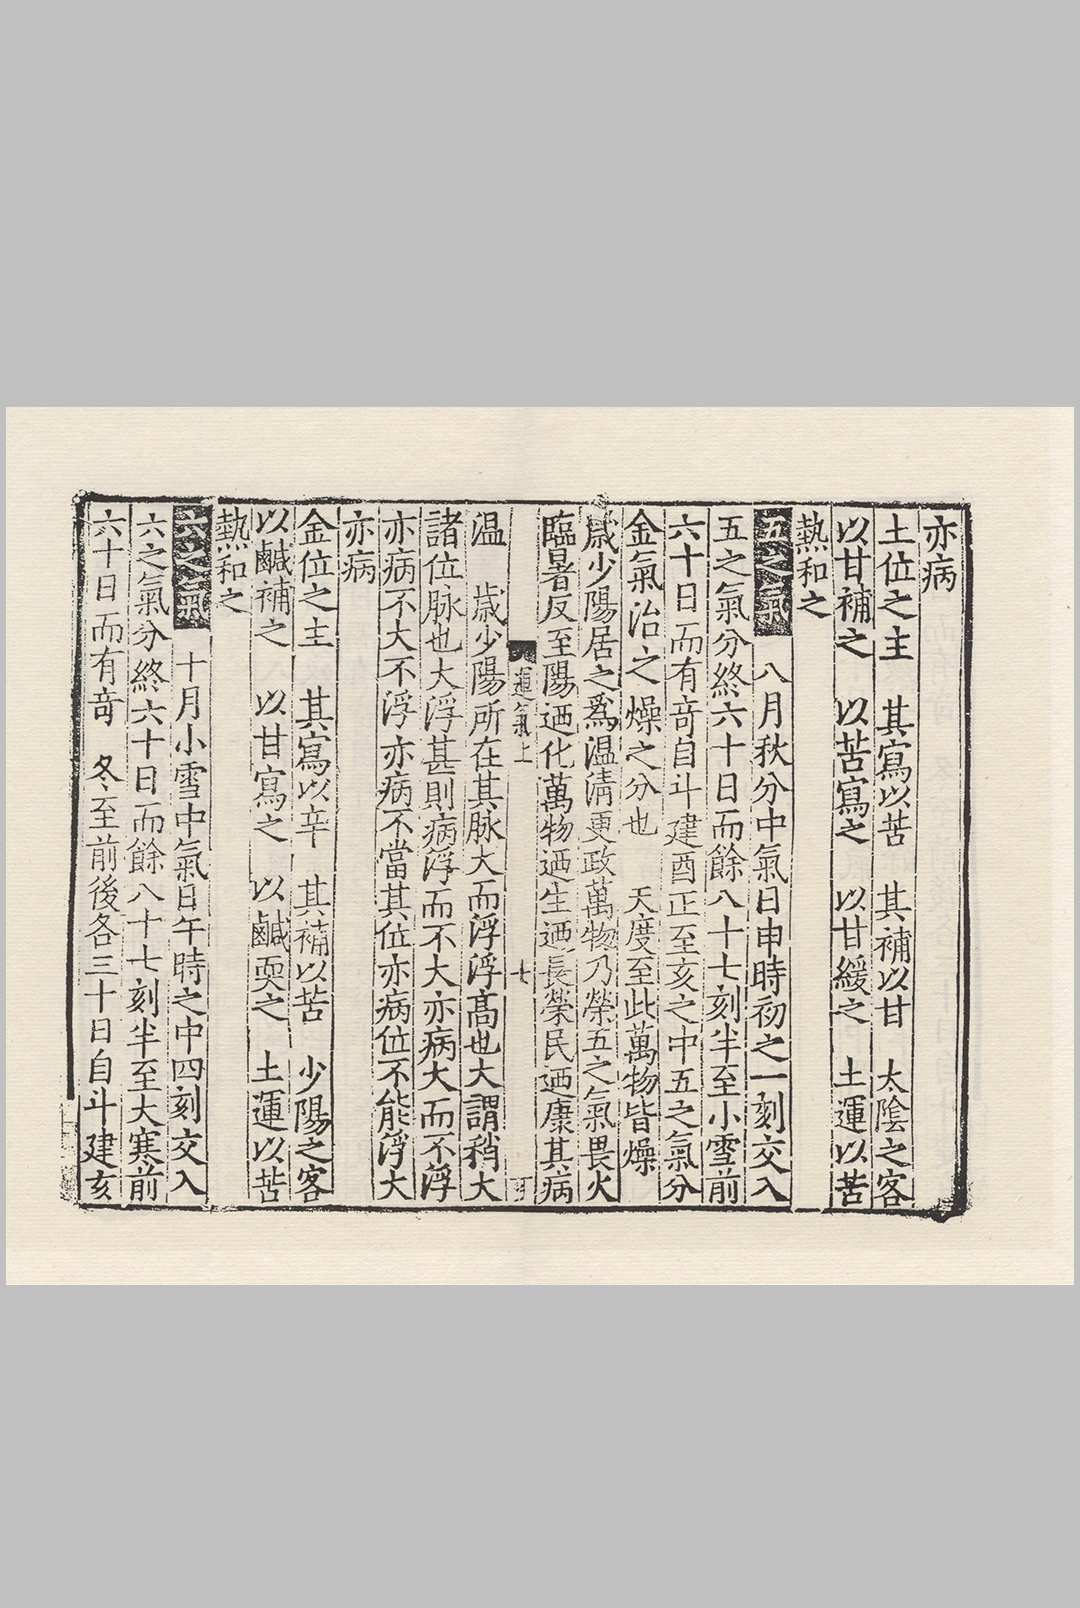 亦病
土位之主　其寫以苦　其補以甘　太陰之客
以甘補之　以苦寫之　以甘緩之　土運以苦
熱和之
五之氣　八月秋分中氣日申時初之一刻交入
五之氣分終六十日而餘八十七刻半至小雪前
六十日而有竒自斗建酉正至亥之中五之氣分
金氣治之燥之分也　天度至此萬物皆燥
歲少陽居之爲温清更政萬物乃榮五之氣畏火
臨暑反至陽迺化萬物迺生迺長榮民迺康其病
運氣上　七
温　歲少陽所在其脉大而浮浮高也大謂稍大
諸位脉也大浮甚則病浮而不大亦病大而不浮
亦病不大不浮亦病不當其位亦病位不能浮大
亦病
金位之主　其寫以辛　其補以苦　少陽之客
以鹹補之　以甘寫之　以鹹耎之　土運以苦
熱和之
六之氣　十月小雪中氣日午時之中四刻交入
六之氣分終六十日而餘八十七刻半至大寒前
六十日而有竒　冬至前後各三十日自斗建亥